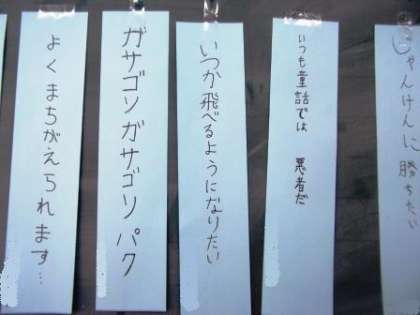 じゃんけんに勝ちたい
いつも童話では 悪者だ
いつか飛べるようになりたい
ガサゴソガサゴソ パク
よくまちがえられます…